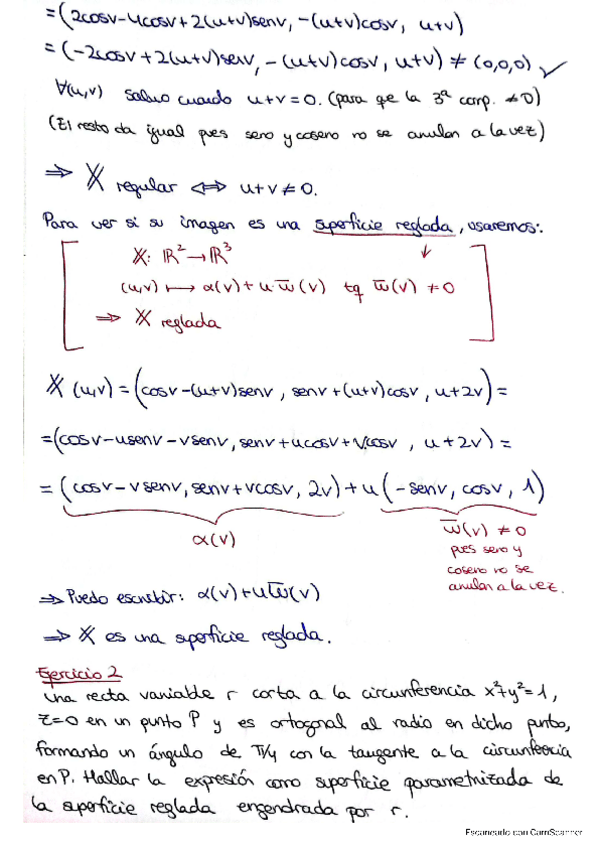 =(2cosv-4cosv+2(u+v)senv, -(u+v)cosv, u+v)
=(-2cosv+2(u+v)senv, -(u+v)cosv, u+v) ≠ (0,0,0) ✓
∀(u,v) salvo cuando u+v=0. (para qe la 3ª comp. ≠0)
(El resto da igual pues seno y coseno no se anulan a la vez)
⇒ X regular ⇔ u+v≠0.
Para ver si su imagen es una superficie reglada, usaremos:
X: ℝ²→ℝ³
(u,v) ↦ α(v)+u·w̅(v) tq w̅(v) ≠0
⇒ X reglada
X(u,v) = (cosv-(u+v)senv, senv+(u+v)cosv, u+2v) =
=(cosv-usenv-vsenv, senv+ucosv+vcosv, u+2v) =
= (cosv-vsenv, senv+vcosv, 2v)+u(-senv, cosv, 1)
α(v)
w̅(v) ≠0
pues seno y
coseno no se
anulan a la vez.
⇒ Puedo escribir: α(v)+uw̅(v)
⇒ X es una superficie reglada.
Ejercicio 2
Una recta variable r corta a la circunferencia x²+y²=1,
z=0 en un punto P y es ortogonal al radio en dicho punto,
formando un ángulo de π/4 con la tangente a la circunferencia
en P. Hallar la expresión como superficie parametrizada de
la superficie reglada engendrada por r.
Escaneado con CamScanner